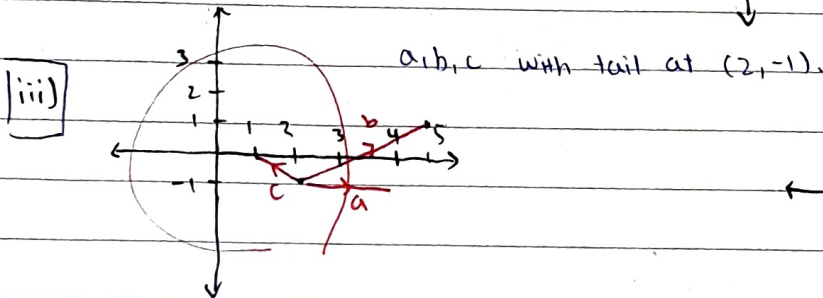 iii)
a,b,c with tail at (2,-1).
3
2
1
1 2 3 4 5
b
-1
c
a